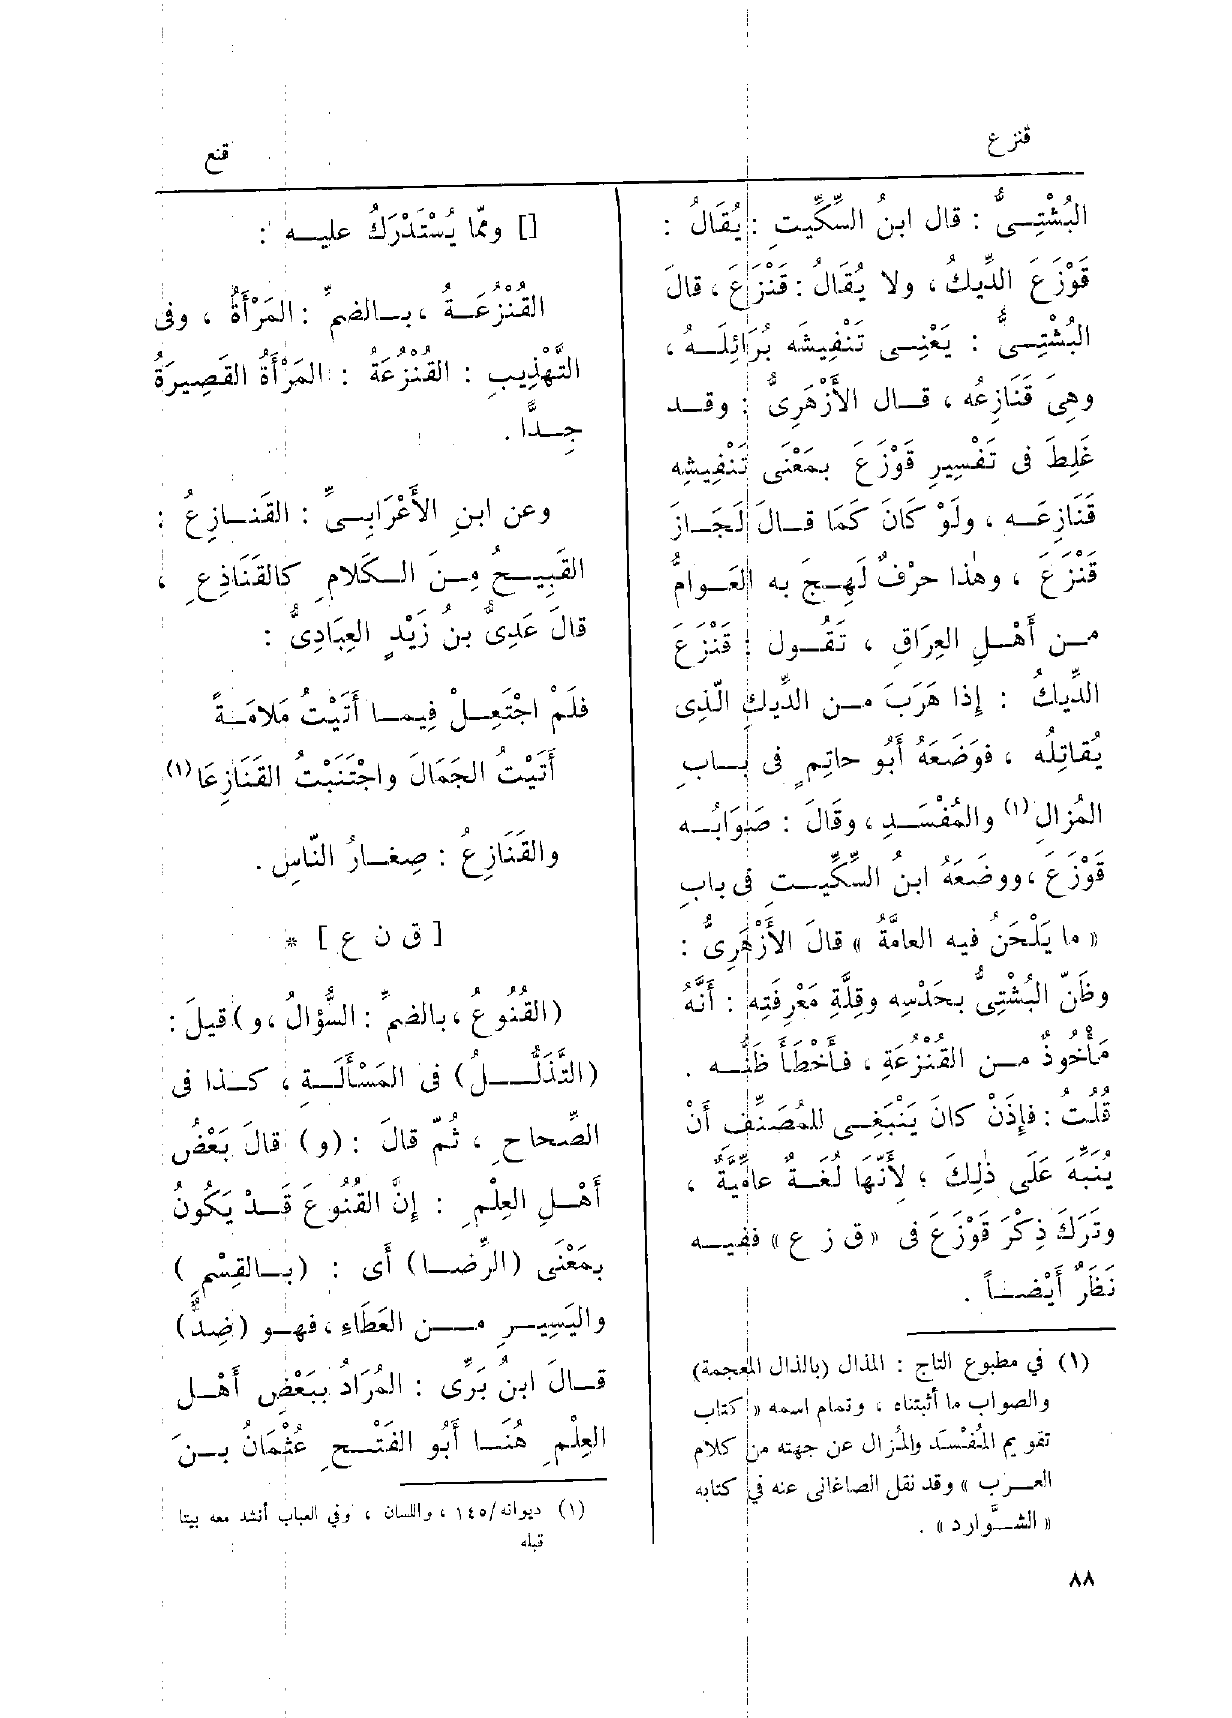 قنزع
قنع
البُشْتِىُّ : قال ابنُ السِّكِّيتِ : يُقَالُ :
قَوْزَعَ الدِّيكُ ، ولا يُقَالُ : قَنْزَعَ ، قالَ
البُشْتِىُّ : يَعْنِى تَنْفِيشَه بُرَائِلَهُ ،
وهِىَ قَنَازِعُه ، قال الأَزْهَرِىُّ : وقد
غَلِطَ فى تَفْسِيرِ قَوْزَعَ بمَعْنَى تَنْفِيشِه
قَنَازِعَه ، ولَوْ كَانَ كَمَا قالَ لَجَازَ
قَنْزَعَ ، وهٰذا حرْفٌ لَهِجَ به العَوامُّ
من أَهْلِ العِرَاقِ ، تَقُول : قَنْزَعَ
الدِّيكُ : إِذا هَرَبَ من الدِّيكِ الّذِى
يُقاتِلُه ، فوَضَعَهُ أَبُو حاتِمٍ فى بابِ
المُزالِ(١) والمُفْسَدِ ، وقَالَ : صَوَابُه
قَوْزَعَ ، ووضَعَهُ ابنُ السِّكِّيتِ فى بابِ
« ما يَلْحَنُ فيه العامَّةُ » قالَ الأَزْهَرِىُّ :
وظَنّ البُشْتِىُّ بحَدْسِه وقِلَّةِ مَعْرِفَتِه : أَنَّهُ
مَأْخُوذٌ من القُنْزُعَةِ ، فأَخْطَأَ ظَنُّه .
قُلْتُ : فإِذَنْ كانَ يَنْبَغِى للمُصَنِّفِ أَنْ
يُنَبِّهَ عَلَى ذٰلِكَ ؛ لأَنّهَا لُغَةٌ عامِّيَّةٌ ،
وتَرَكَ ذِكْرَ قَوْزَعَ فى « ق ز ع » ففيه
نَظَرٌ أَيْضاً .
(١) في مطبوع التاج : المذال (بالذال المعجمة)
والصواب ما أثبتناه ، وتمام اسمه « كتاب
تقويم المُفْسَد والمُزال عن جهته من كلام
العرب » وقد نقل الصاغانى عنه في كتابه
« الشَّوارد » .
[] وممّا يُسْتَدْرَكُ عليه :
القُنْزُعَةُ ، بالضمِّ : المَرْأَةُ ، وفى
التَّهْذِيبِ : القُنْزُعَةُ : المَرْأَةُ القَصِيرَةُ
جِدًّا .
وعن ابنِ الأَعْرَابِىِّ : القَنازِعُ :
القَبِيحُ مِنَ الكَلامِ كالقَنَاذِعِ ،
قالَ عَدِىُّ بنُ زَيْدٍ العِبَادِىُّ :
فلَمْ اجْتَعِلْ فِيما أَتَيْتُ مَلامَةً
أَتَيْتُ الجَمَالَ واجْتَنَبْتُ القَنَازِعَا(١)
والقَنَازِعُ : صِغارُ النّاسِ .
[ ق ن ع ] *
(القُنُوعُ ، بالضمِّ : السُّؤَالُ ، و) قيلَ :
(التَّذَلُّلُ) فى المَسْأَلَةِ ، كذا فى
الصِّحاحِ ، ثُمّ قالَ : (و) قالَ بَعْضُ
أَهْلِ العِلْمِ : إِنَّ القُنُوعَ قَدْ يَكُونُ
بمَعْنَى (الرِّضا) أَى : (بالقِسْمِ)
واليَسِيرِ من العَطَاءِ ، فهو (ضِدٌّ)
قالَ ابنُ بَرِّى : المُرَادُ ببَعْضِ أَهْلِ
العِلْمِ هُنَا أَبُو الفَتْحِ عُثْمَانُ بنَ
(١) ديوانه/١٤٥ ، واللسان ، وفي العباب أنشد معه بيتا
قبله
٨٨